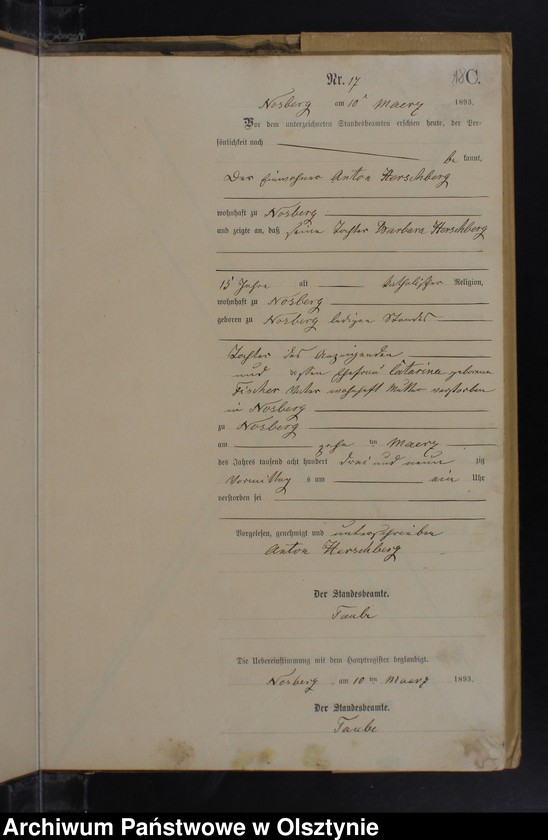 Nr. 17 C.
Nosberg am 10 Maerz 1893.
Vor dem unterzeichneten Standesbeamten erschien heute, der Per-
sönlichkeit nach
be kannt,
Der Einwohner Anton Herschberg
wohnhaft zu Nosberg
und zeigte an, daß seine Tochter Barbara Herschberg
15 Jahre alt katholischer Religion,
wohnhaft zu Nosberg
geboren zu Nosberg ledigen Standes
Tochter des Anzeigenden
und dessen Ehefrau Catarina geborene
Fischer Vater wohnhaft Mutter verstorben
in Nosberg
zu Nosberg
am zehn ten Maerz
des Jahres tausend acht hundert drei und neun zig
Vormittag s um ein Uhr
verstorben sei
Vorgelesen, genehmigt und unterschrieben
Anton Herschberg
Der Standesbeamte.
Taube
Die Uebereinstimmung mit dem Hauptregister beglaubigt.
Nosberg am 10 ten Maerz 1893.
Der Standesbeamte.
Taube
Archiwum Państwowe w Olsztynie